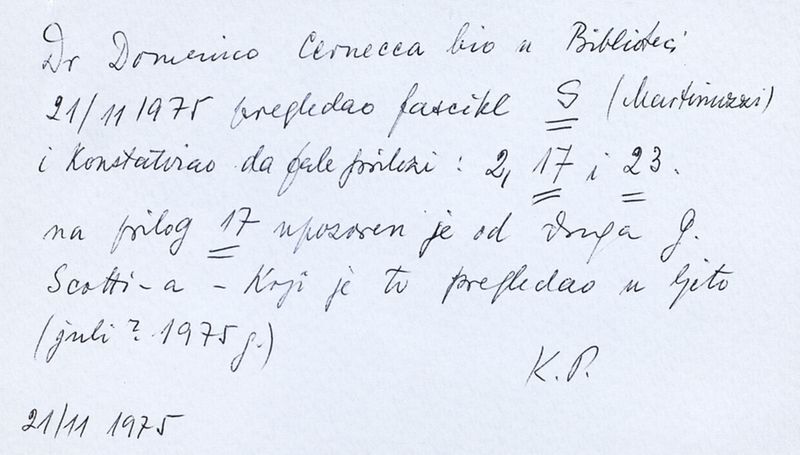 Dr Domenico Cernecca bio u Biblioteci
21/11 1975 pregledao fascikl S (Martinuzzi)
i Konstatirao da fale prilozi : 2, 17 i 23.
na prilog 17 upozoren je od druga G.
Scotti-a - Koji je to pregledao u ljeto
(juli ? 1975 g.)
K.P.
21/11 1975